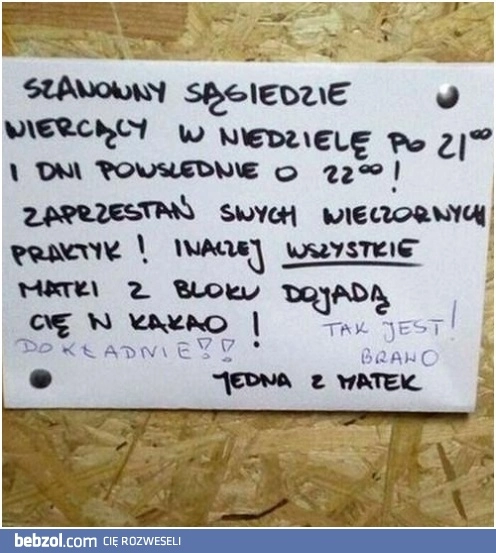 SZANOWNY SĄSIEDZIE
WIERCĄCY W NIEDZIELĘ PO 21⁰⁰
I DNI POWSLEDNIE O 22⁰⁰!
ZAPRZESTAŃ SWYCH WIECZORNYCH
PRAKTYK! INACZEJ WSZYSTKIE
MATKI Z BLOKU DOJADĄ
CIĘ N KAKAO!
TAK JEST!
DOKŁADNIE!!
BRAWO
JEDNA Z MATEK
bebzol.com CIĘ ROZWESELI